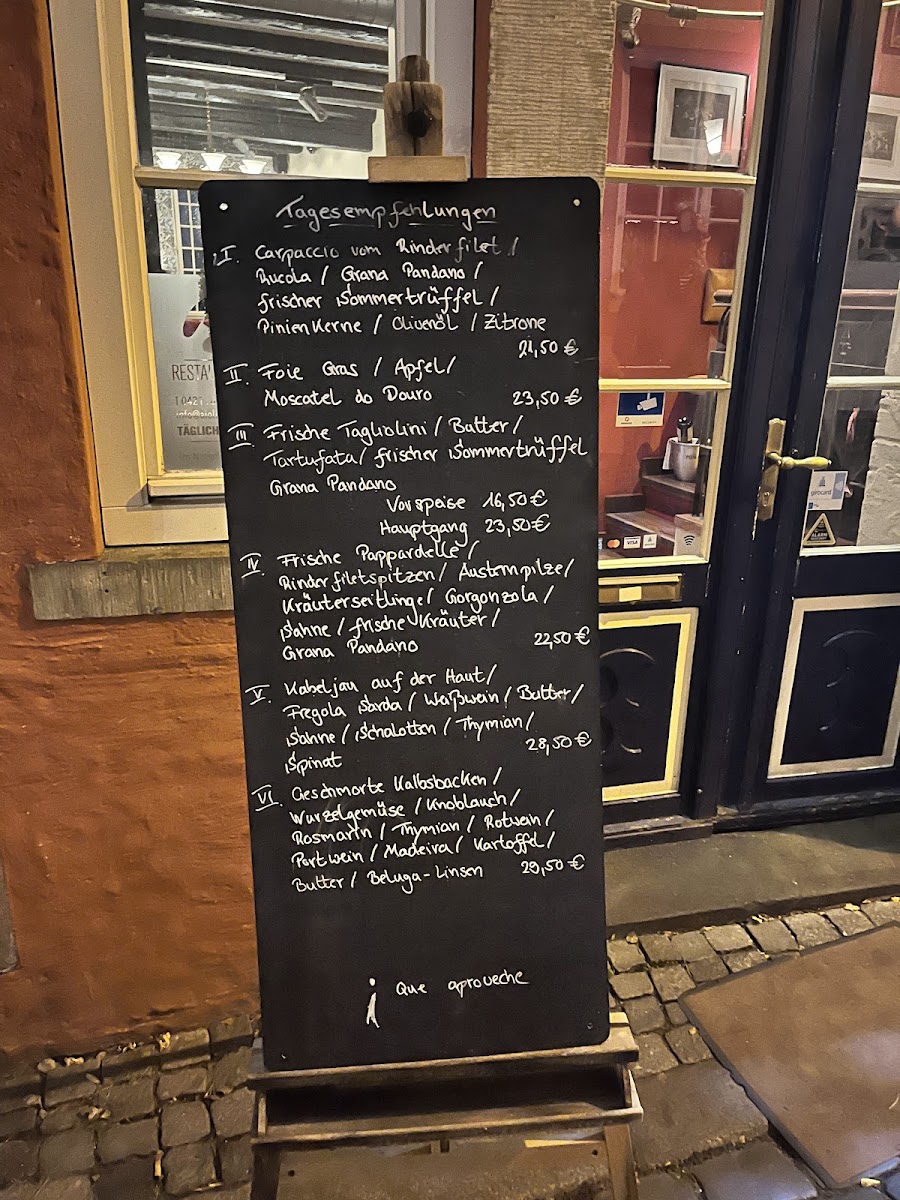 Tagesempfehlungen
I. Carpaccio vom Rinderfilet /
Rucola / Grana Pandano /
frischer Sommertrüffel /
Pinienkerne / Olivenöl / Zitrone
21,50 €
II. Foie Gras / Apfel /
Moscatel do Douro 23,50 €
III. Frische Tagliolini / Butter /
Tartufata / frischer Sommertrüffel
Grana Pandano
Vorspeise 16,50 €
Hauptgang 23,50 €
IV. Frische Pappardelle /
Rinderfiletspitzen / Austernpilze /
Kräuterseitlinge / Gorgonzola /
Sahne / frische Kräuter /
Grana Pandano 22,50 €
V. Kabeljau auf der Haut /
Fregola Sarda / Weißwein / Butter /
Sahne / Schalotten / Thymian /
Spinat 28,50 €
VI. Geschmorte Kalbsbacken /
Wurzelgemüse / Knoblauch /
Rosmarin / Thymian / Rotwein /
Portwein / Madeira / Kartoffel /
Butter / Beluga-Linsen 29,50 €
¡ Que aproveche
RESTA
T 0421
TÄGLICH
VISA
girocard
ALARM